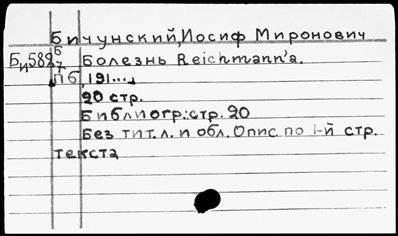 Бичунский, Иосиф Миронович
Би 589 Б/7 Болезнь Reichmann'a.
Пб, 191...,
20 стр.
Библиогр: стр. 20
Без тит. л. и обл. Опис. по 1-й стр.
текста